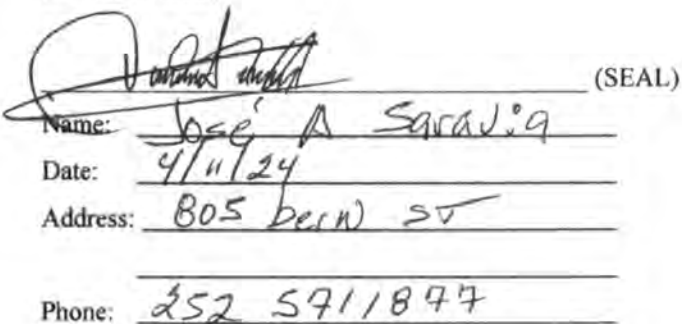 (SEAL)
Name: José A Saravia
Date: 4/11/24
Address: 805 bern st
Phone: 252 5711877